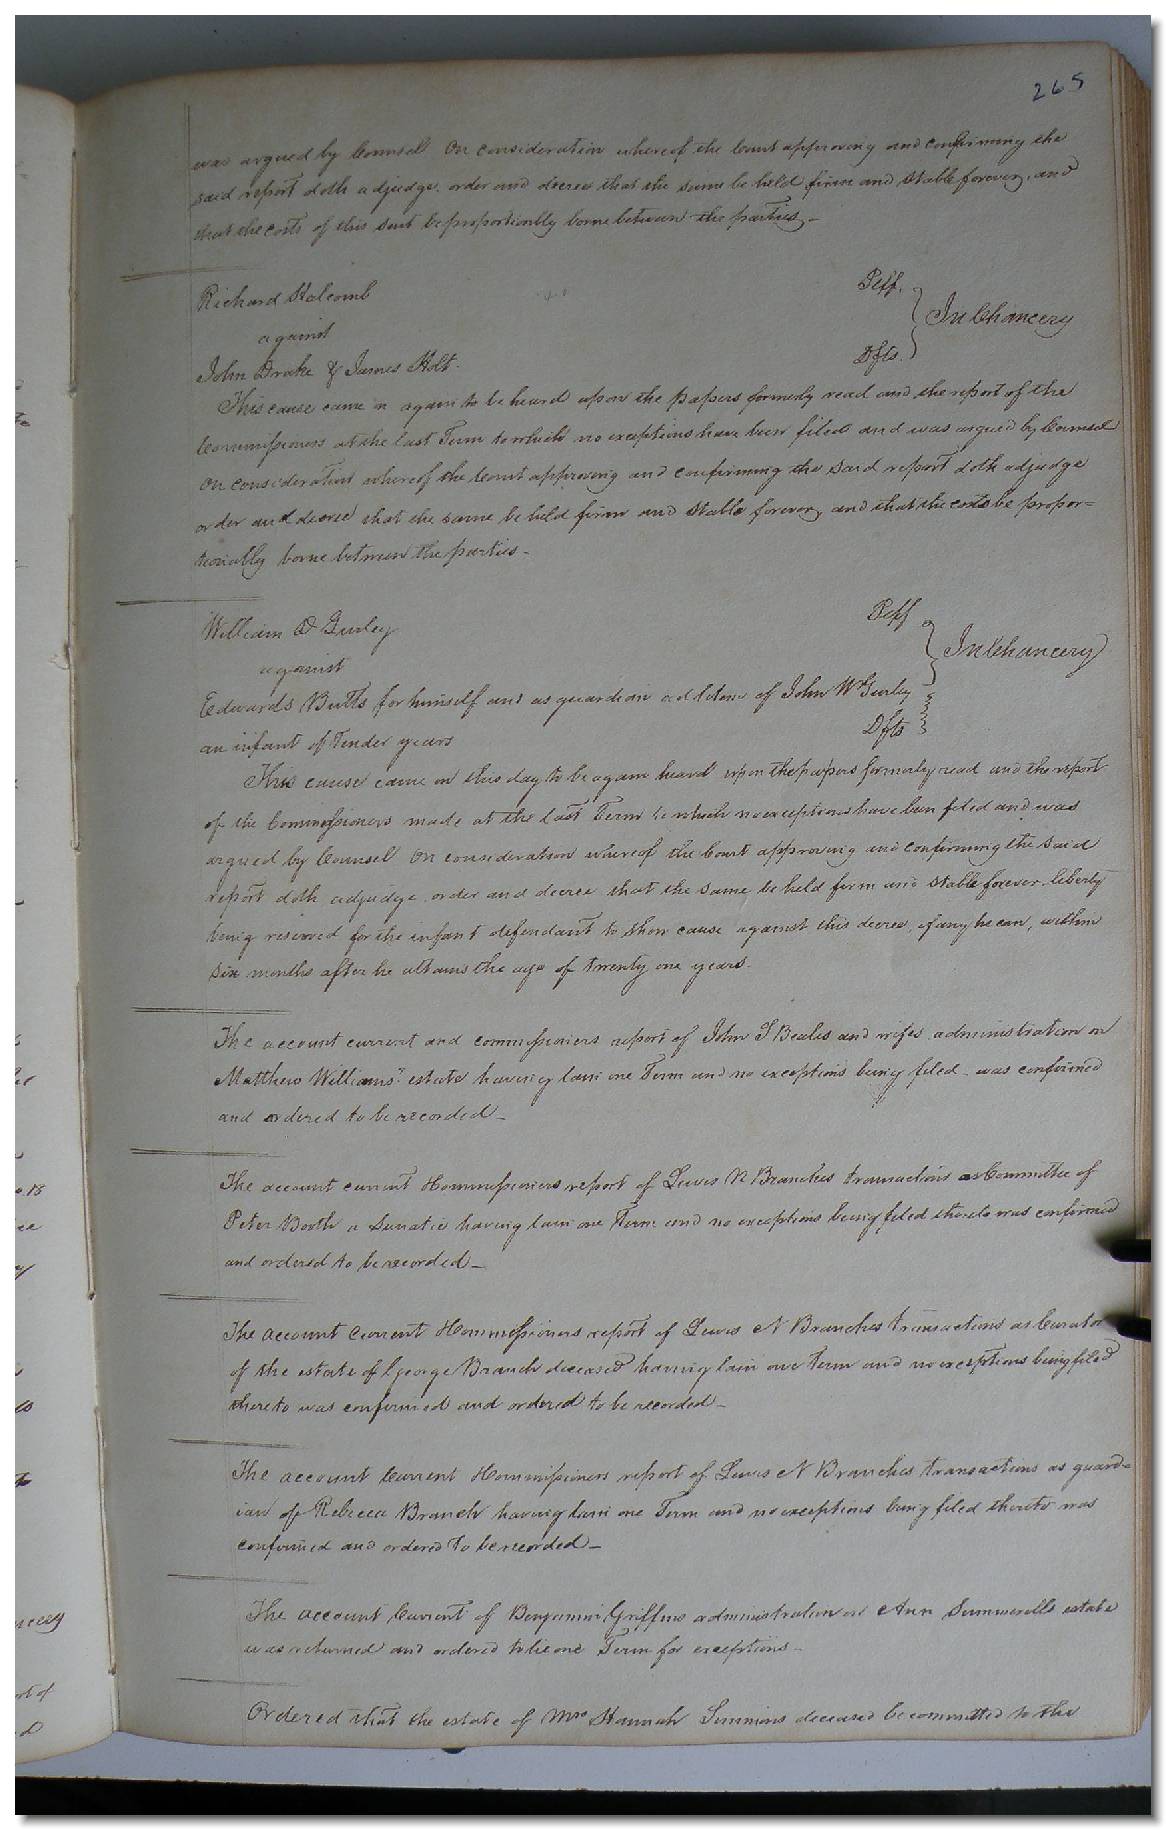 265
was argued by Counsel On consideration whereof the Court approving and confirming the
said report doth adjudge, order and decree that the same be held firm and stable forever, and
that the costs of this suit be proportionably borne between the parties.
Richard Holcomb Plff.
against In Chancery
John Drake & James Holt. Dfts.
This cause came on again to be heard upon the papers formerly read and the report of the
Commissioners at the last Term to which no exceptions have been filed and was argued by Counsel
On consideration whereof the Court approving and confirming the said report doth adjudge
order and decree that the same be held firm and stable forever, and that the costs be propor=
tionably borne between the parties.
William D Gurley Plff
against In Chancery
Edwards Butts for himself and as guardian ad litem of John W Gurley
an infant of tender years Dfts
This cause came on this day to be again heard upon the papers formerly read and the report
of the Commissioners made at the last Term to which no exceptions have been filed and was
argued by Counsel On consideration whereof the Court approving and confirming the said
report doth adjudge order and decree that the same be held firm and stable forever liberty
being reserved for the infant defendant to show cause against this decree, if any he can, within
six months after he attains the age of twenty one years.
The account current and commissioners report of John S Beales and wifes administration on
Matthew Williams' estate having lain one Term and no exceptions being filed was confirmed
and ordered to be recorded
The account current & Commissioners report of Lewis N Branches transactions as Committee of
Peter Booth a Lunatic having lain one Term and no exceptions being filed thereto was confirmed
and ordered to be recorded
The account Current & Commissioners report of Lewis N Branches transactions as Curator
of the estate of George Branch deceased having lain one Term and no exceptions being filed
thereto was confirmed and ordered to be recorded
The account Current & Commissioners report of Lewis N Branches transactions as guard=
ian of Rebecca Branch having lain one Term and no exceptions being filed thereto was
confirmed and ordered to be recorded
The account Current of Benjamin Griffins administration on Ann Summerells estate
was returned and ordered to lie one Term for exceptions
Ordered that the estate of Mrs Hannah Simmons deceased be committed to the